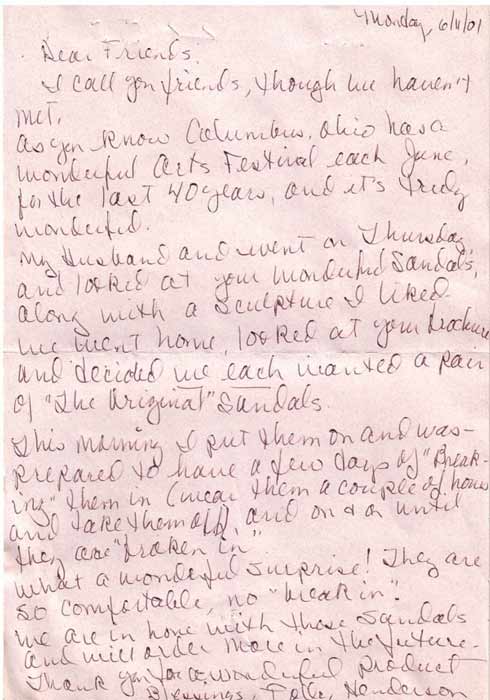 Monday, 6/11/01
Dear Friends.
I call you friends, though we haven't
met.
As you know Columbus, Ohio has a
wonderful Arts Festival each June,
for the last 40 years, and it's truly
wonderful.
My Husband and I went on Thursday,
and looked at your wonderful Sandals,
along with a sculpture I liked.
We went home, looked at your brochure
and decided we each wanted a pair
of "The Original" Sandals.
This morning I put them on and was
prepared to have a few days of "Break-
ing" them in (wear them a couple of hours
and take them off, and on & on until
they are "broken in".
What a wonderful surprise! They are
so comfortable, no "break in".
We are in love with these Sandals
and will order more in the future.
Thank you for a wonderful product
Blessings,